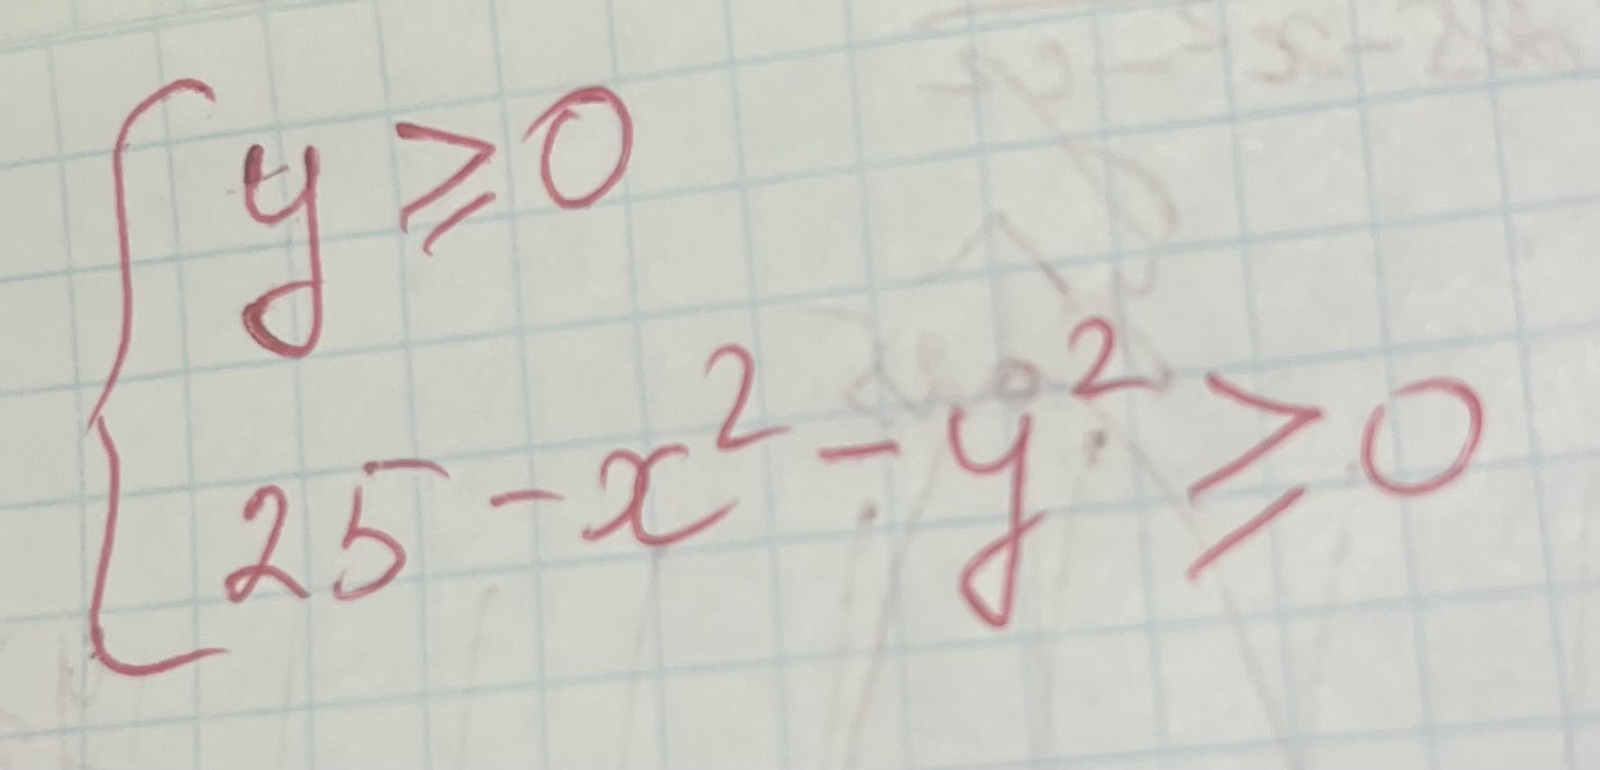 y ⩾ 0
25 - x² - y² ⩾ 0